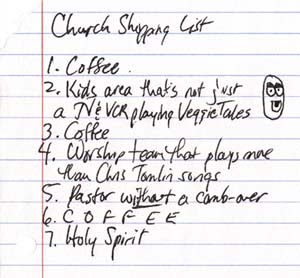 Church Shopping List
1. Coffee
2. Kids area that's not just
a TV & VCR playing VeggieTales
3. Coffee
4. Worship team that plays more
than Chris Tomlin songs
5. Pastor without a comb-over
6. C O F F E E
7. Holy Spirit